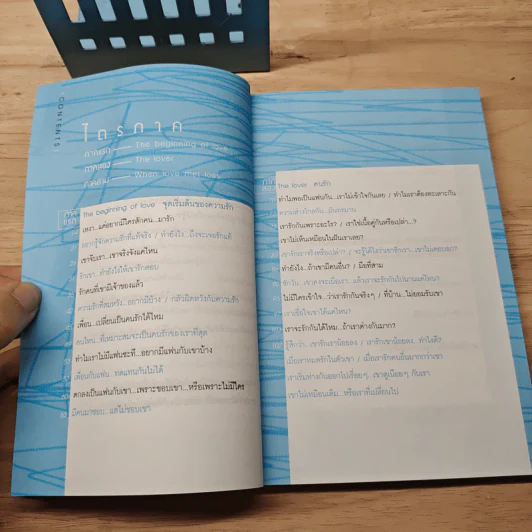 CONTENTS
ไตรภาค
ภาคแรก The beginning of love
ภาคสอง The lover
ภาคสาม When love met loss
ภาคแรก
The beginning of love จุดเริ่มต้นของความรัก
เหงา...แค่อยากมีใครสักคน...มารัก
อยากรู้จักความรักที่แท้จริง / ทำยังไง...ถึงจะเจอรักแท้
เขาจีบเรา...เขาจริงจังแค่ไหน
รักเขา ทำยังไงให้เขารักตอบ
รักคนที่เขามีเจ้าของแล้ว
ความรักที่สมหวัง...อยากมีบ้าง / กลัวผิดหวังกับความรัก
เพื่อน...เปลี่ยนเป็นคนรักได้ไหม
คนไหน...ที่เหมาะสมจะเป็นคนรักของเราที่สุด
ทำไมเราไม่มีแฟนซะที...อยากมีแฟนกับเขาบ้าง
เพื่อนกับแฟน...ทดแทนกันไม่ได้
ตกลงเป็นแฟนกับเขา...เพราะชอบเขา...หรือเพราะไม่มีใคร
มีคนมาชอบ...แต่ไม่ชอบเขา
ภาคสอง
The lover คนรัก
ทำไมพอเป็นแฟนกัน...เราไม่เข้าใจกันเลย / ทำไมเราต้องทะเลาะกัน
ความห่างไกลกัน...มันทรมาน
เรารักกันเพราะอะไร? / เราใช่เนื้อคู่กันหรือเปล่า...?
เขาไม่เห็นเหมือนในฝันเราเลย?
เขารักเราจริงหรือเปล่า? / จะรู้ได้ไงว่าเขารักเรา...เขาไม่เคยบอก?
ทำยังไง...ถ้าเขามีคนอื่น? / มือที่สาม
ไม่มีใครเข้าใจ...ว่าเรารักกันจริงๆ / ที่บ้าน...ไม่ยอมรับเขา
เราเชื่อใจเขาได้แค่ไหน?
เราจะรักกันได้ไหม...ถ้าเราต่างกันมาก?
รู้สึกว่า...เขารักเราน้อยลง / เรารักเขาน้อยลง...ทำไงดี?
เมื่อเราหมดรักในตัวเขา / เมื่อเรารักคนอื่นมากกว่าเขา
เราเริ่มห่างกันออกไปเรื่อยๆ...เขาดูเบื่อๆ กับเรา
เขาไม่เหมือนเดิม...หรือเราที่เปลี่ยนไป